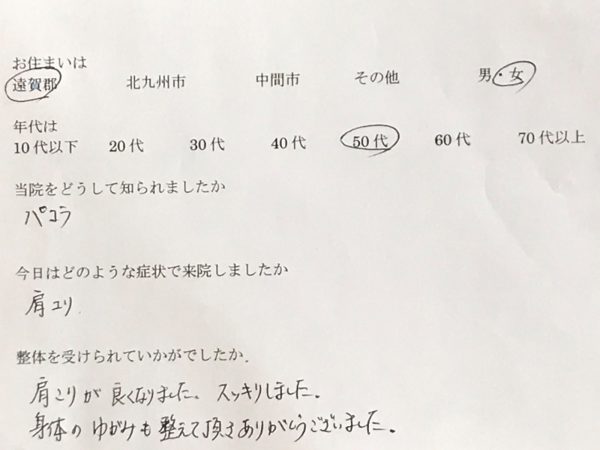 お住まいは
遠賀郡 北九州市 中間市 その他 男・女
年代は
10代以下 20代 30代 40代 50代 60代 70代以上
当院をどうして知られましたか
パコラ
今日はどのような症状で来院しましたか
肩コリ
整体を受けられていかがでしたか.
肩こりが良くなりました。スッキリしました。
身体のゆがみも整えて頂きありがとうございました。